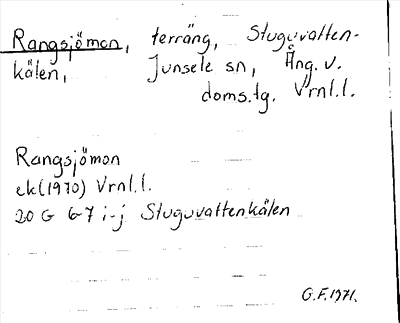 Rangsjömon, terräng, Stuguvatten-
kälen, Junsele sn, Ång. v.
doms.tg. Vrnl.l.
Rangsjömon
ek(1970) Vrnl.l.
20 G 6-7 i-j Stuguvattenkälen
G.F.1971.